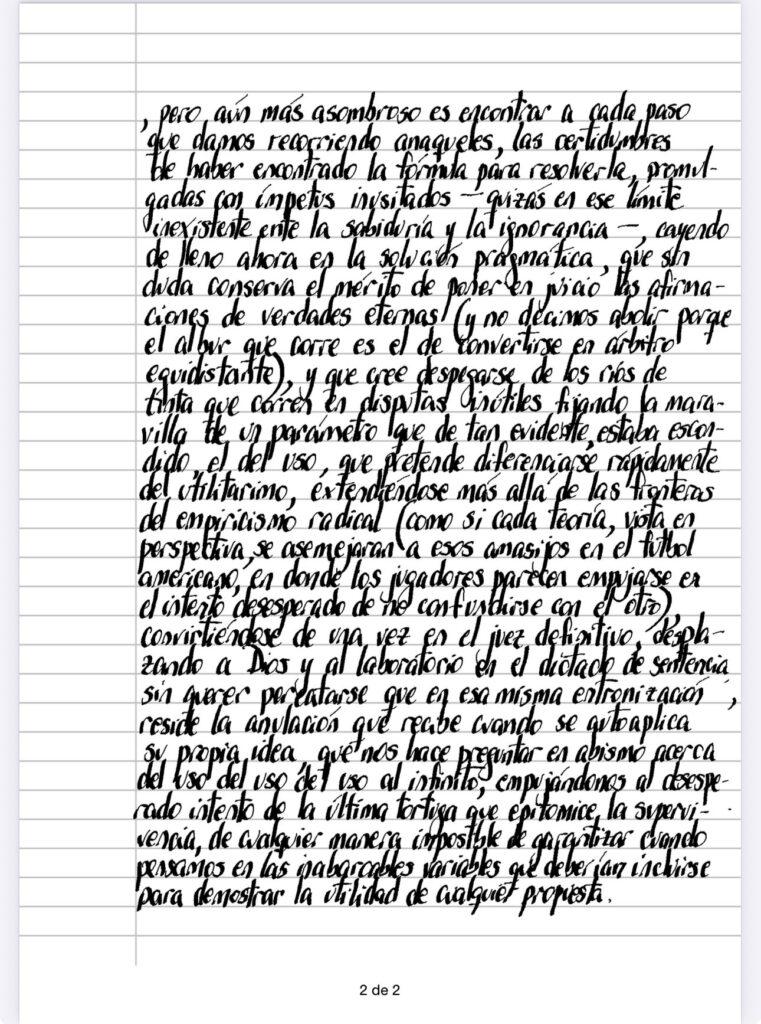 , pero aún más asombroso es encontrar a cada paso
que damos recorriendo anaqueles, las certidumbres
de haber encontrado la fórmula para resolverla, promul-
gadas con ímpetus inusitados — quizás en ese límite
inexistente ente la sabiduría y la ignorancia —, cayendo
de lleno ahora en la solución pragmática, que sin
duda conserva el mérito de poner en juicio las afirma-
ciones de verdades eternas (y no decimos abolir porque
el albur que corre es el de convertirse en árbitro
equidistante), y que cree despegarse de los ríos de
tinta que corren en disputas inútiles fijando la mara-
villa de un parámetro que de tan evidente, estaba escon-
dido, el del uso, que pretende diferenciarse rápidamente
del utilitarimo, extendiéndose más allá de las fronteras
del empiricismo radical (como si cada teoría, vista en
perspectiva, se asemejaran a esos amasijos en el futbol
americano, en donde los jugadores parecen empujarse en
el intento desesperado de no confundirse con el otro),
convirtiéndose de una vez en el juez definitivo, despla-
zando a Dios y al laboratorio en el dictado de sentencia
sin querer percatarse que en esa misma entronización ,
reside la anulación que recibe cuando se autoaplica
su propia idea, que nos hace preguntar en abismo acerca
del uso del uso del uso al infinito, empujándonos al desespe-
rado intento de la última tortuga que epitomice la supervi-
vencia, de cualquier manera imposible de garantizar cuando
pensamos en las inabarcables variables que deberían incluirse
para demostrar la utilidad de cualquier propuesta.
2 de 2